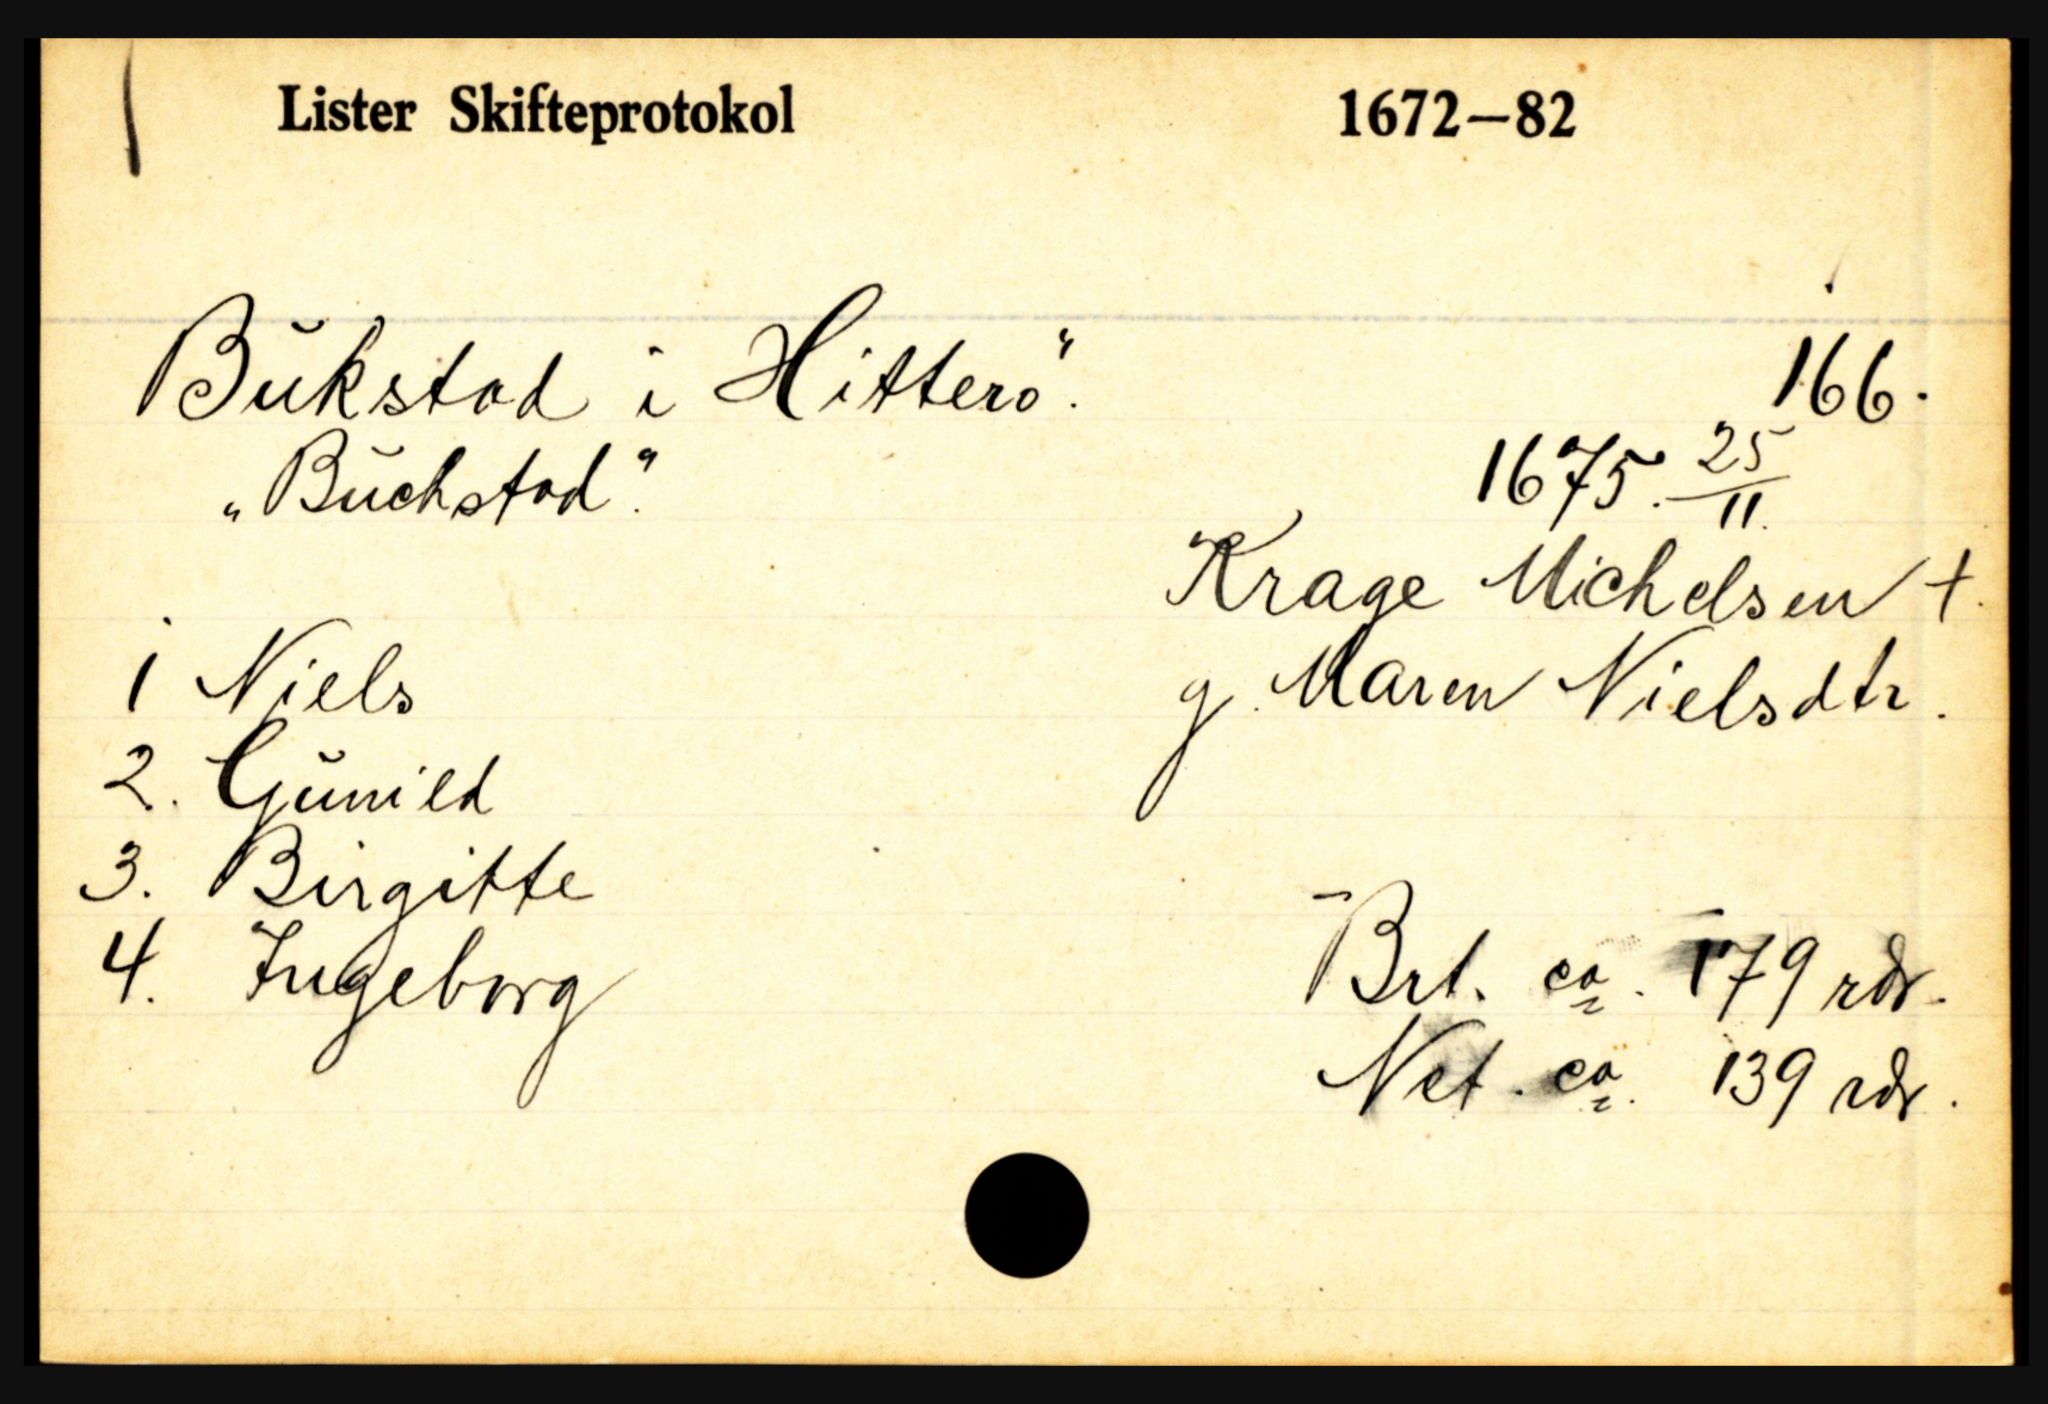 Lister Skifteprotokol 1672—82
Bukstad i Hitterö.
166.
„Buchstad".
1675. 25/11.
Krage Michelsen +.
g. Maren Nielsdtr.
1 Niels
2. Gunild
3. Birgitte
4. Ingeborg
Brt. ca. 179 rdr.
Net. ca. 139 rdr.